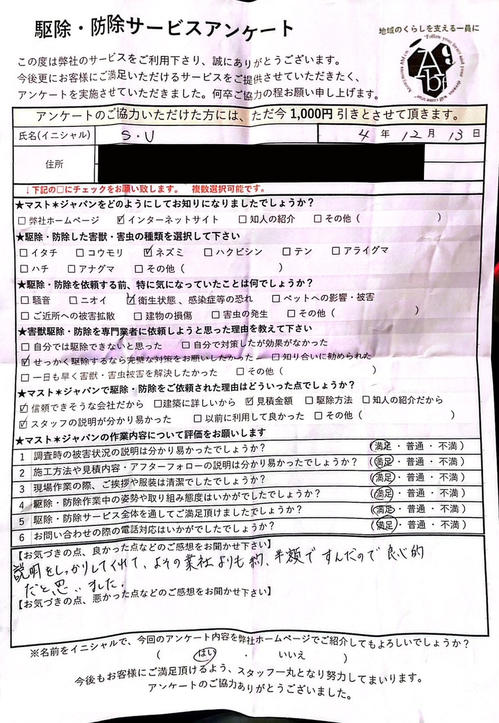 駆除・防除サービスアンケート
地域のくらしを支える一員に
この度は弊社のサービスをご利用下さり、誠にありがとうございます。
今後更にお客様にご満足いただけるサービスを提供させていただきたく、
アンケートを実施させていただきました。何卒ご協力の程お願い申し上げます。
アンケートのご協力いただけた方には、ただ今1,000円引きとさせて頂きます。
氏名(イニシャル) S・U 4年12月13日
住所
↓下記の□にチェックをお願い致します。 複数選択可能です。
★マスト＊ジャパンをどのようにしてお知りになりましたでしょうか?
□弊社ホームページ ☑インターネットサイト □知人の紹介 □その他( )
★駆除・防除した害獣・害虫の種類を選択して下さい
□イタチ □コウモリ ☑ネズミ □ハクビシン □テン □アライグマ
□ハチ □アナグマ □その他( )
★駆除・防除を依頼する前、特に気になっていたことは何でしょうか?
□騒音 □ニオイ ☑衛生状態、感染症等の恐れ □ペットへの影響・被害
□ご近所への被害拡散 □建物の損傷 □害虫の発生 □その他( )
★害獣駆除・防除を専門業者に依頼しようと思った理由を教えて下さい
□自分では駆除できないと思った □自分で対策したが効果がなかった
☑せっかく駆除するなら完璧な対策をお願いしたかった □知り合いに勧められた
□一日も早く害獣・害虫被害を解決したかった □その他( )
★マスト＊ジャパンで駆除・防除をご依頼された理由はどういった点でしょうか?
☑信頼できそうな会社だから □建築に詳しいから ☑見積金額 □駆除方法 □知人の紹介だから
☑スタッフの説明が分かり易かった □以前に利用して良かった □その他( )
★マスト＊ジャパンの作業内容について評価をお願いします
1 調査時の被害状況の説明は分かり易かったでしょうか? 満足・普通・不満)
2 施工方法や見積内容・アフターフォローの説明は分かり易かったでしょうか? (満足・普通・不満)
3 現場作業の際、ご挨拶や服装は清潔でしたでしょうか? (満足・普通・不満)
4 駆除・防除作業中の姿勢や取り組み態度はいかがでしたでしょうか? (満足・普通・不満)
5 駆除・防除サービス全体を通してご満足頂けましたでしょうか? (満足・普通・不満)
6 お問い合わせの際の電話対応はいかがでしたでしょうか? (満足・普通・不満)
【お気づきの点、良かった点などのご感想をお聞かせ下さい】
説明をしっかりしてくれて、よその業社よりも約、半額ですんだので良心的
だと思いました.
【お気づきの点、悪かった点などのご感想をお聞かせ下さい】
※名前をイニシャルで、今回のアンケート内容を弊社ホームページでご紹介してもよろしいでしょうか?
( はい ・ いいえ )
今後もお客様にご満足頂けるよう、スタッフ一丸となり努力してまいります。
アンケートのご協力ありがとうございました。